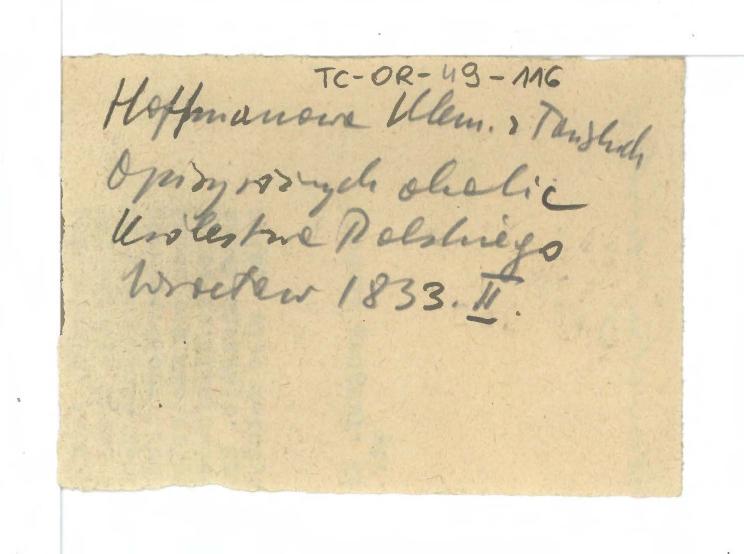 TC-OR-49-116
Hoffmanowa Klem. z Tańskich
Opisy różnych okolic
Królestwa Polskiego
Wrocław 1833. II.